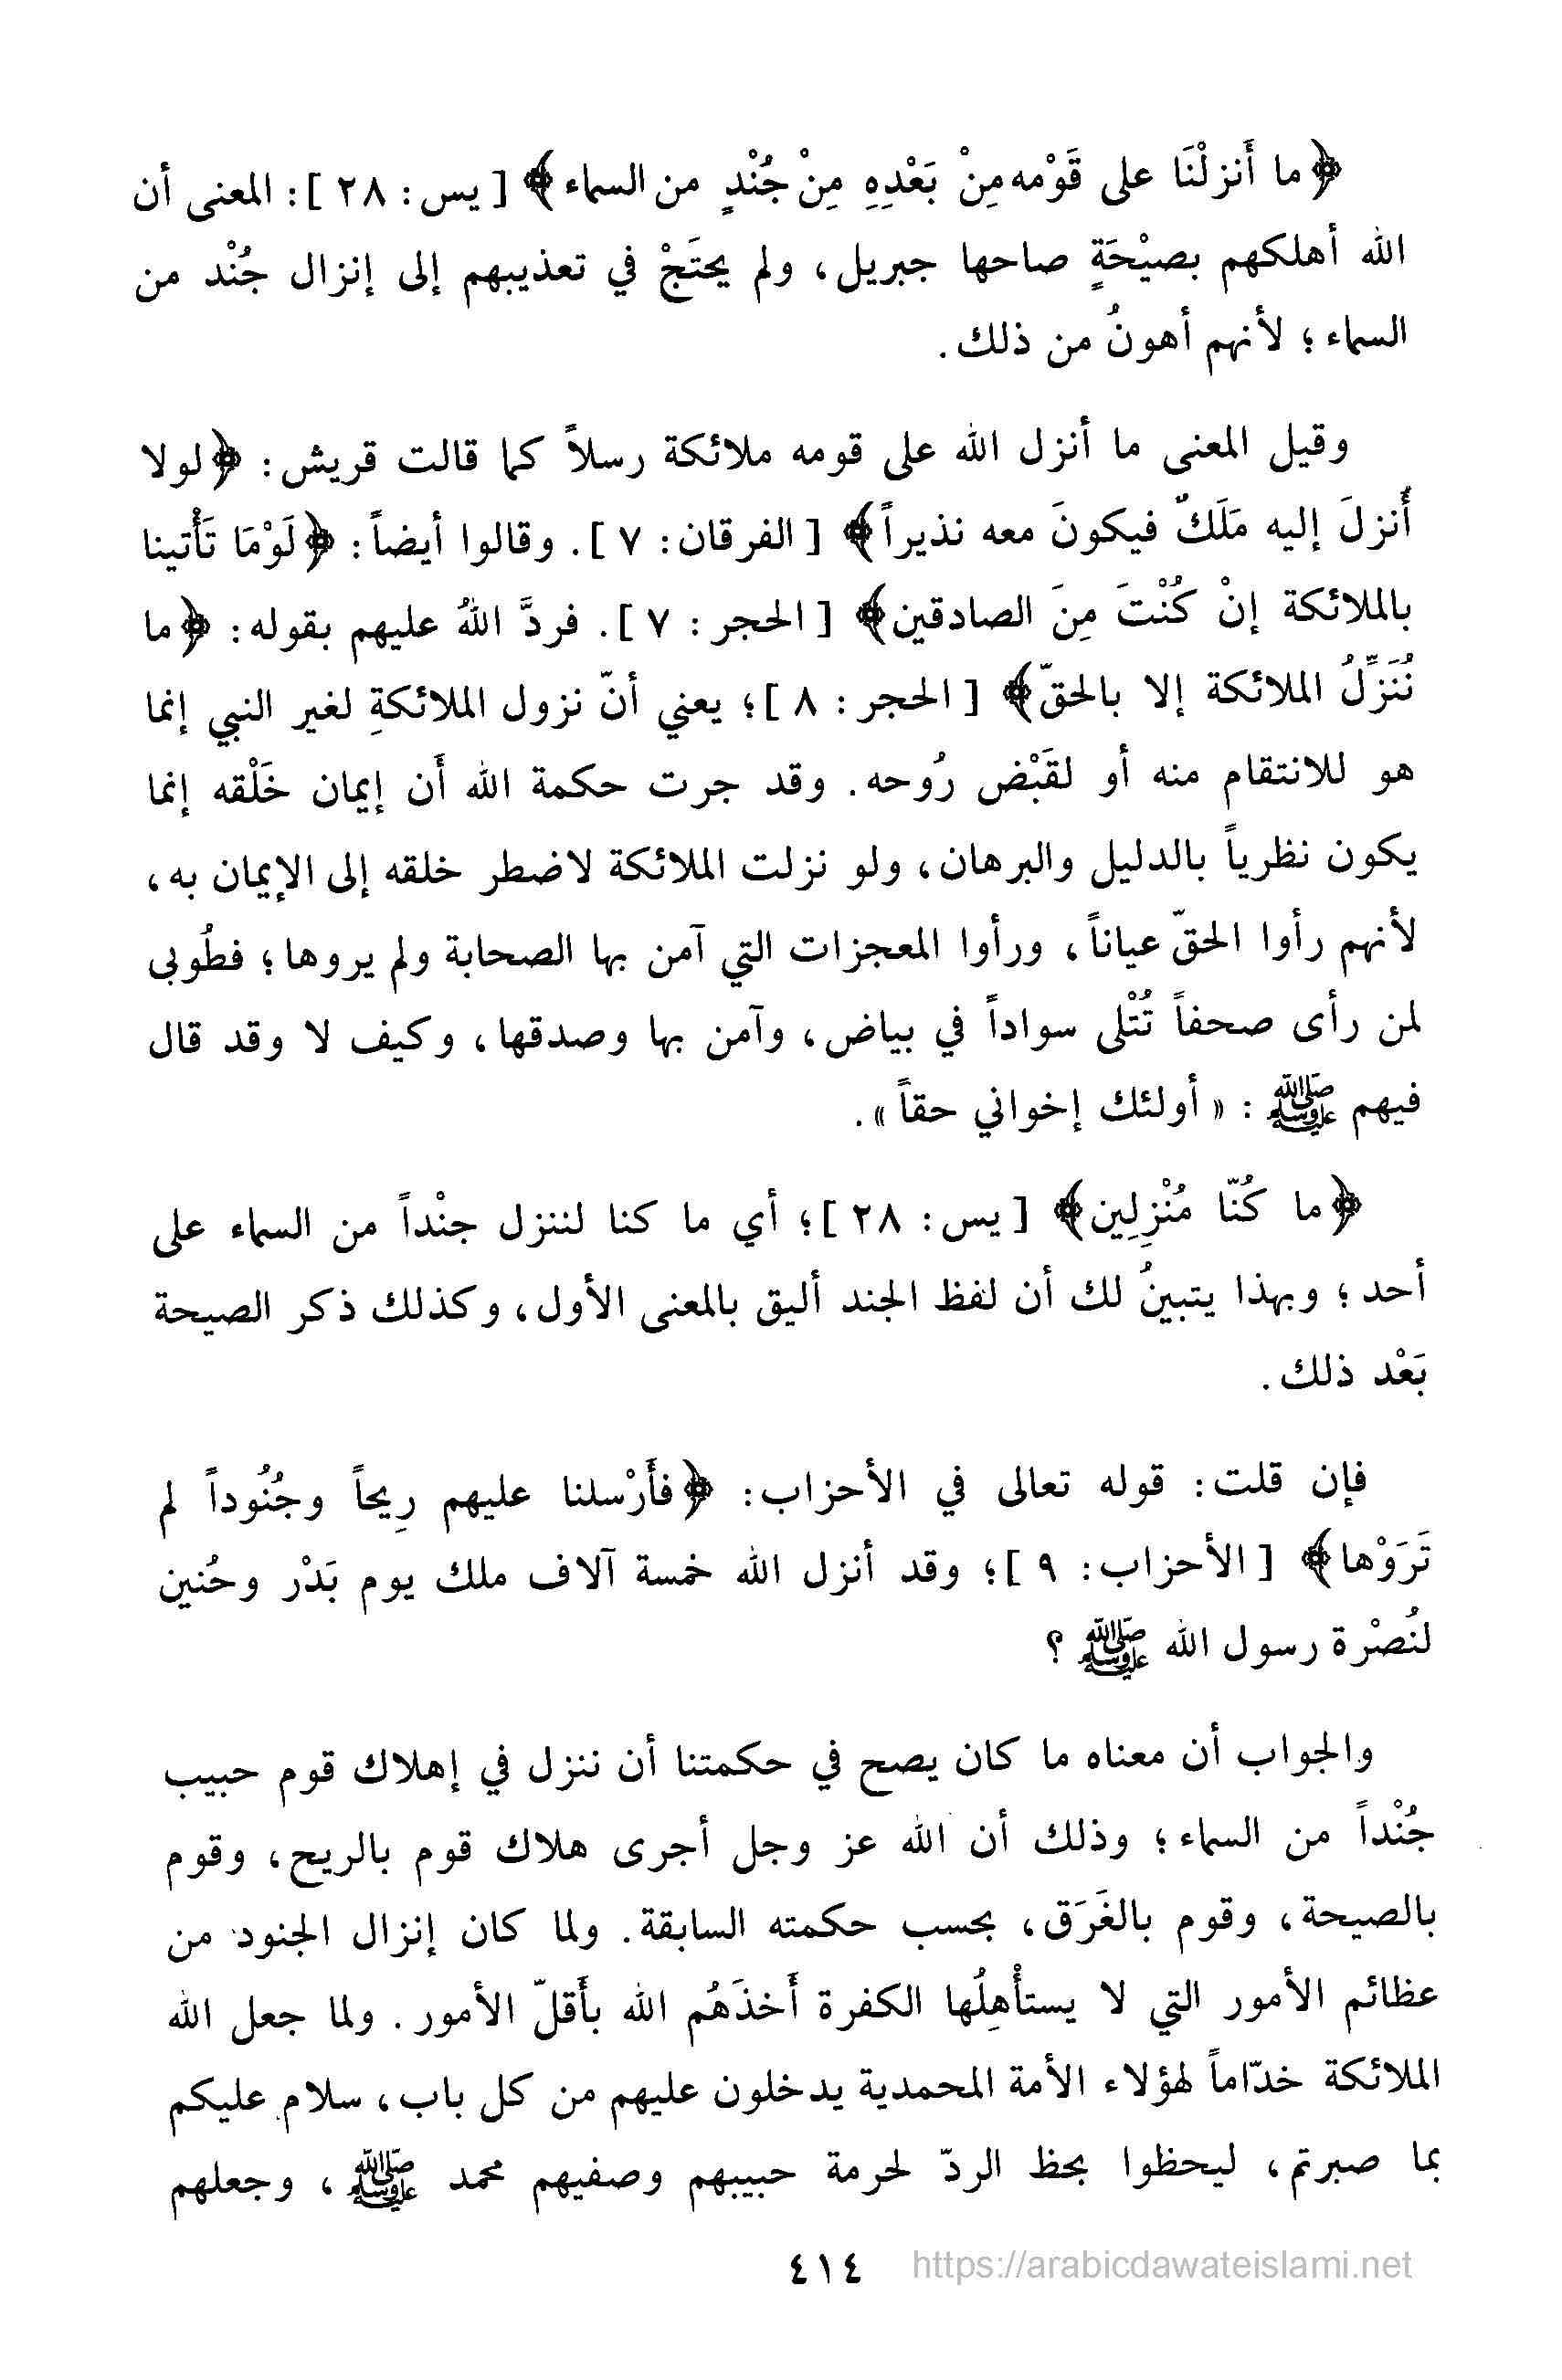 ﴿ما أَنزلْنَا على قَوْمه مِنْ بَعْدِهِ مِنْ جُنْدٍ من السماء﴾ [ يس: ٢٨ ]: المعنى أن
الله أهلكهم بصيْحَةٍ صاحها جبريل، ولم يحتَجْ في تعذيبهم إلى إنزال جُنْد من
السماء؛ لأنهم أهونُ من ذلك.
وقيل المعنى ما أنزل الله على قومه ملائكة رسلاً كما قالت قريش: ﴿لولا
أُنزلَ إليه مَلَكٌ فيكونَ معه نذيراً﴾ [ الفرقان: ٧ ]. وقالوا أيضاً: ﴿لَوْمَا تَأْتينا
بالملائكة إنْ كُنْتَ مِنَ الصادقين﴾ [ الحجر: ٧ ]. فردَّ اللهُ عليهم بقوله: ﴿ما
نُنَزِّلُ الملائكة إلا بالحقّ﴾ [ الحجر: ٨ ]؛ يعني أنّ نزول الملائكةِ لغير النبي إنما
هو للانتقام منه أو لقَبْض رُوحه. وقد جرت حكمة الله أَن إيمان خَلْقه إنما
يكون نظرياً بالدليل والبرهان، ولو نزلت الملائكة لاضطر خلقه إلى الإيمان به،
لأنهم رأوا الحقّ عياناً، ورأوا المعجزات التي آمن بها الصحابة ولم يروها؛ فطُوبى
لمن رأى صحفاً تُتْلى سواداً في بياض، وآمن بها وصدقها، وكيف لا وقد قال
فيهم ﷺ: «أولئك إخواني حقاً».
﴿ما كُنّا مُنْزِلِين﴾ [ يس: ٢٨ ]؛ أي ما كنا لننزل جنْداً من السماء على
أحد؛ وبهذا يتبينُ لك أن لفظ الجند أليق بالمعنى الأول، وكذلك ذكر الصيحة
بَعْد ذلك.
فإن قلت: قوله تعالى في الأحزاب: ﴿فأَرْسلنا عليهم رِيحاً وجُنُوداً لم
تَرَوْها﴾ [ الأحزاب: ٩ ]؛ وقد أنزل الله خمسة آلاف ملك يوم بَدْر وحُنين
لنُصْرة رسول الله ﷺ؟
والجواب أن معناه ما كان يصح في حكمتنا أن ننزل في إهلاك قوم حبيب
جُنْداً من السماء؛ وذلك أن الله عز وجل أجرى هلاك قوم بالريح، وقوم
بالصيحة، وقوم بالغَرَق، بحسب حكمته السابقة. ولما كان إنزال الجنود من
عظائم الأمور التي لا يستأْهِلُها الكفرة أَخذَهُم الله بأَقلّ الأمور. ولما جعل الله
الملائكة خدّاماً لهؤلاء الأمة المحمدية يدخلون عليهم من كل باب، سلام عليكم
بما صبرتم، ليحظوا بحظ الردّ لحرمة حبيبهم وصفيهم محمد ﷺ، وجعلهم
٤١٤ https://arabicdawateislami.net